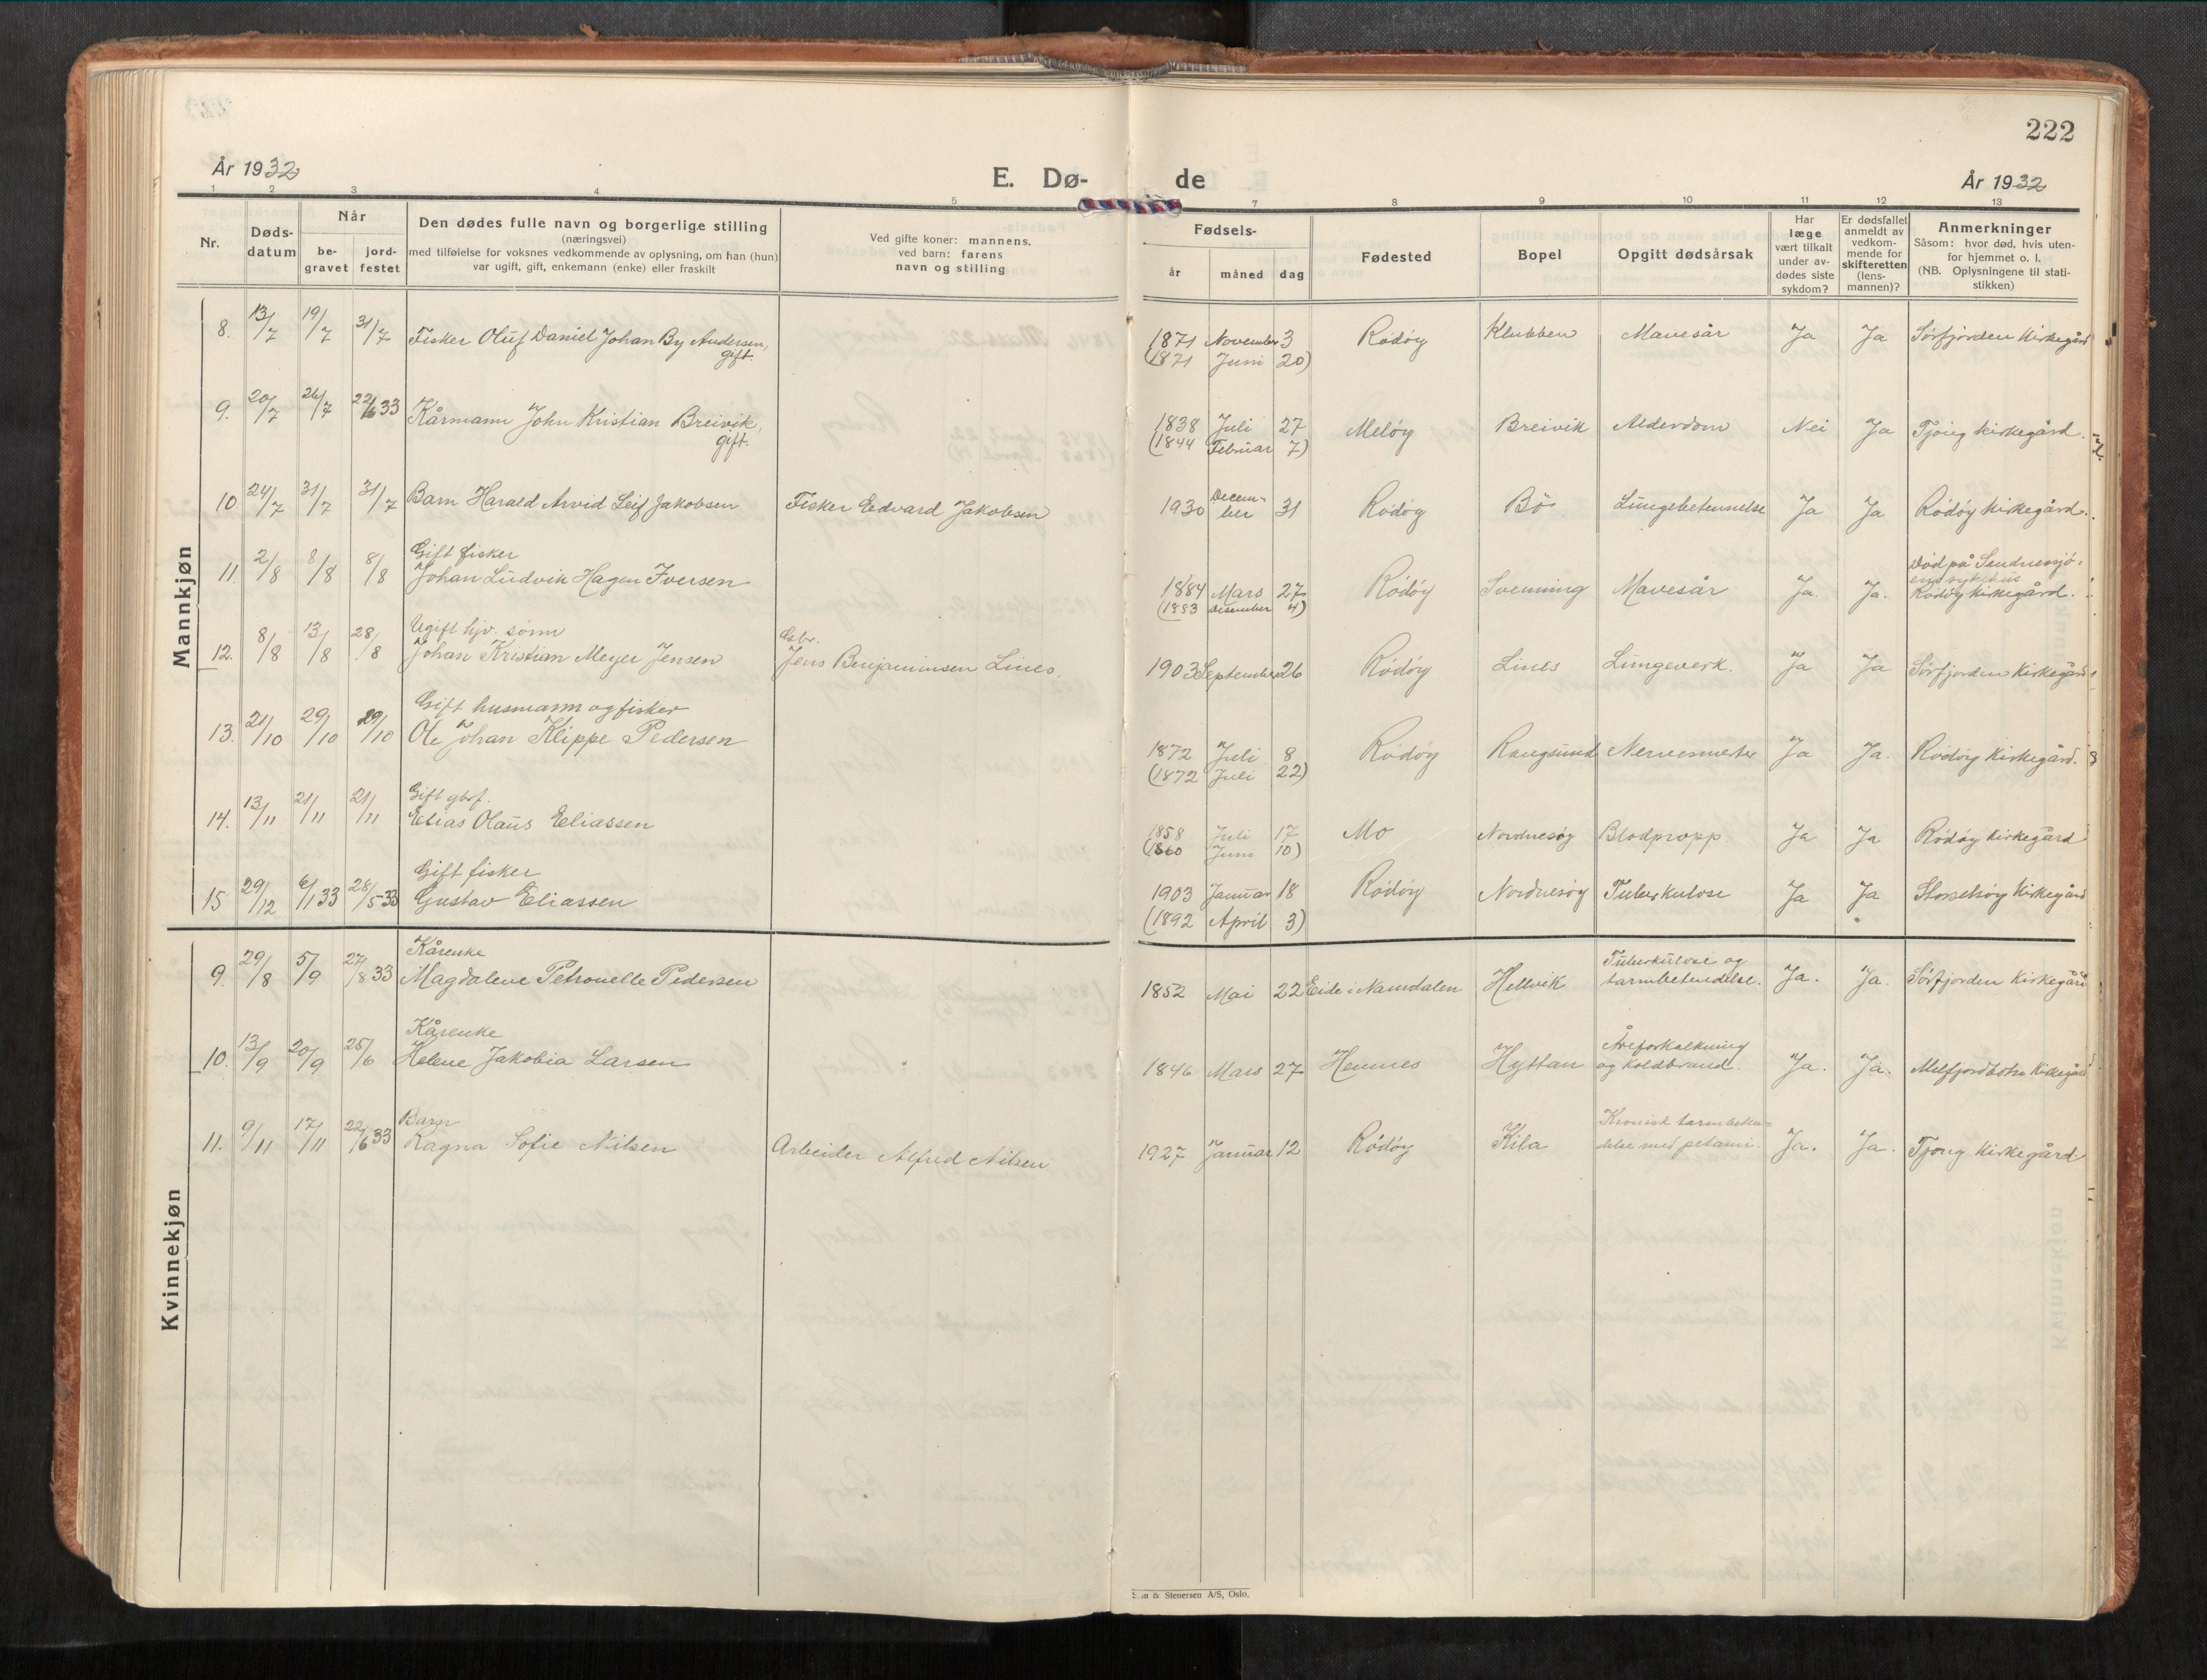 222
År 1932
E. Dø-
de
År 1932
1 2 3 4 5 7 8 9 10 11 12 13
Nr.
Døds-
datum
Når
be-
gravet
jord-
festet
Den dødes fulle navn og borgerlige stilling
(næringsvei)
med tilføielse for voksnes vedkommende av oplysning, om han (hun)
var ugift, gift, enkemann (enke) eller fraskilt
Ved gifte koner: mannens.
ved barn: farens
navn og stilling
Fødsels-
år måned dag
Fødested
Bopel
Opgitt dødsårsak
Har
læge
vært tilkalt
under av-
dødes siste
sykdom?
Er dødsfallet
anmeldt av
vedkom-
mende for
skifteretten
(lens-
mannen)?
Anmerkninger
Såsom: hvor død, hvis uten-
for hjemmet o. l.
(NB. Oplysningene til stati-
stikken)
Mannkjøn
8. 13/7 19/7 31/7 Fisker Oluf Daniel Johan By Andersen, 1871 November 3 Rødøy Klubben Mavesår Ja Ja Sørfjorden Kirkegård
gift. (1871 Juni 20)
9. 20/7 26/7 22/6 33 Kårmann John Kristian Breivik, 1838 Juli 27 Meløy Breivik Alderdom Nei Ja Tjong kirkegård.
gift. (1844 Februar 7)
10. 24/7 31/7 31/7 Barn Harald Arvid Leif Jakobsen Fisker Edvard Jakobsen 1930 Decem-
ber 31 Rødøy Bø Lungebetennelse Ja Ja Rødøy kirkegård.
Gift fisker
11. 2/8 8/8 8/8 Johan Ludvik Hagen Iversen 1884 Mars 27 Rødøy Svenning Mavesår Ja. Ja. Død på Sandnessjø-
ens sykehus
(1883 December 4) Rødøy kirkegård.
Ugift hjv. sønn Gbr.
12. 8/8 13/8 28/8 Johan Kristian Meyer Jensen Jens Benjaminsen Lines. 1903 September 26 Rødøy Lines Lungeverk. Ja Ja Sørfjorden Kirkegård
Gift husmann og fisker
13. 21/10 29/10 29/10 Ole Johan Klippe Pedersen 1872 Juli 8 Rødøy Rangsund Nervesmerter Ja Ja. Rødøy Kirkegård.
(1872 Juli 22)
Gift gbr.
14. 13/11 21/11 21/11 Elias Olaus Eliassen 1858 Juli 17 Mo Nordnesøy Blodpropp Ja Ja Rødøy kirkegård
(1860 Juni 10)
Gift fisker
15 29/12 6/1 33 28/5-33 Gustav Eliassen 1903 Januar 18 Rødøy Nordnesøy Tuberkulose Ja Ja Storselsøy Kirkegård
(1892 April 3)
Kvinnekjøn
Kårenke
9. 29/8 5/9 27/8 33 Magdalene Petronelle Pedersen 1852 Mai 22 Eide i Namdalen Hellvik Tuberkulose og
tarmbetendelse. Ja. Ja. Sørfjorden Kirkegård
Kårenke
10. 13/9 20/9 25/6 Helene Jakobia Larsen 1846 Mars 27 Hemnes Hyttan Åreforkalkning
og koldbrand. Ja. Ja. Melfjordbotn Kirkegård
Barn
11. 9/11 17/11 22/6 33 Ragna Sofie Nilsen Arbeider Alfred Nilsen 1927 Januar 12 Rødøy Kila Kronisk tarmbeten-
delse med Ja. Ja. Tjong Kirkegård
& Stenersen A/S, Oslo.